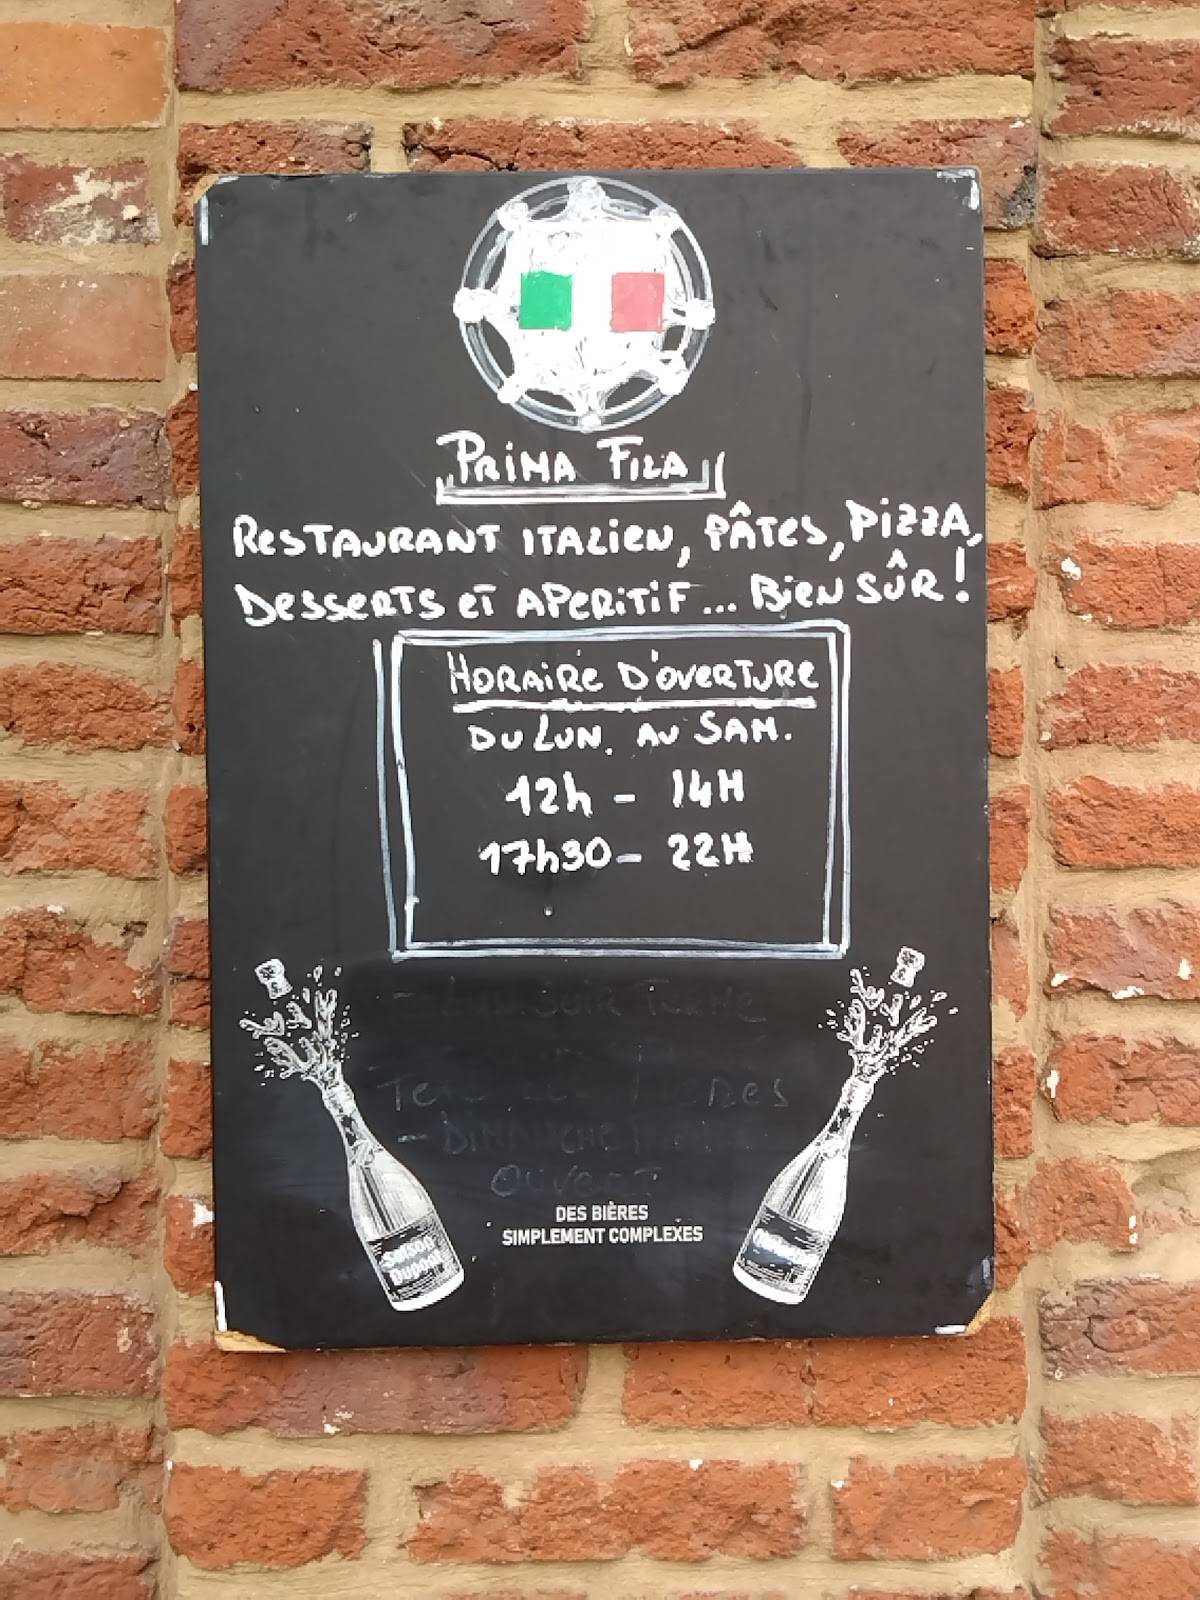 PRIMA FILA
RESTAURANT ITALIEN, PÂTES, PIZZA,
DESSERTS ET APERITIF... BIEN SÛR!
HORAIRE D'OVERTURE
DU LUN. AU SAM.
12h - 14H
17h30 - 22H
SOIR FERMÉ
DIMANCHE
OUVERT
DES BIÈRES
SIMPLEMENT COMPLEXES
Saison
Dupont